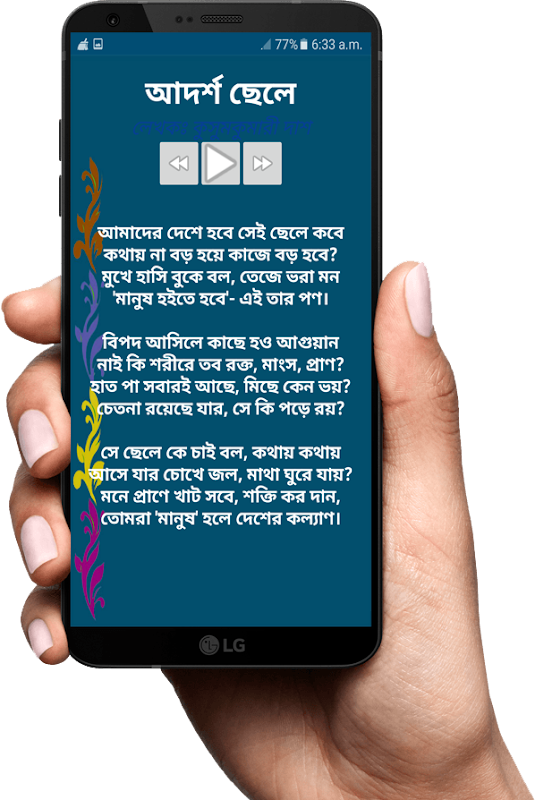 77% 6:33 a.m.
আদর্শ ছেলে
লেখকঃ কুসুমকুমারী দাশ
আমাদের দেশে হবে সেই ছেলে কবে
কথায় না বড় হয়ে কাজে বড় হবে?
মুখে হাসি বুকে বল, তেজে ভরা মন
'মানুষ হইতে হবে'- এই তার পণ।
বিপদ আসিলে কাছে হও আগুয়ান
নাই কি শরীরে তব রক্ত, মাংস, প্রাণ?
হাত পা সবারই আছে, মিছে কেন ভয়?
চেতনা রয়েছে যার, সে কি পড়ে রয়?
সে ছেলে কে চাই বল, কথায় কথায়
আসে যার চোখে জল, মাথা ঘুরে যায়?
মনে প্রাণে খাট সবে, শক্তি কর দান,
তোমরা 'মানুষ' হলে দেশের কল্যাণ।
LG